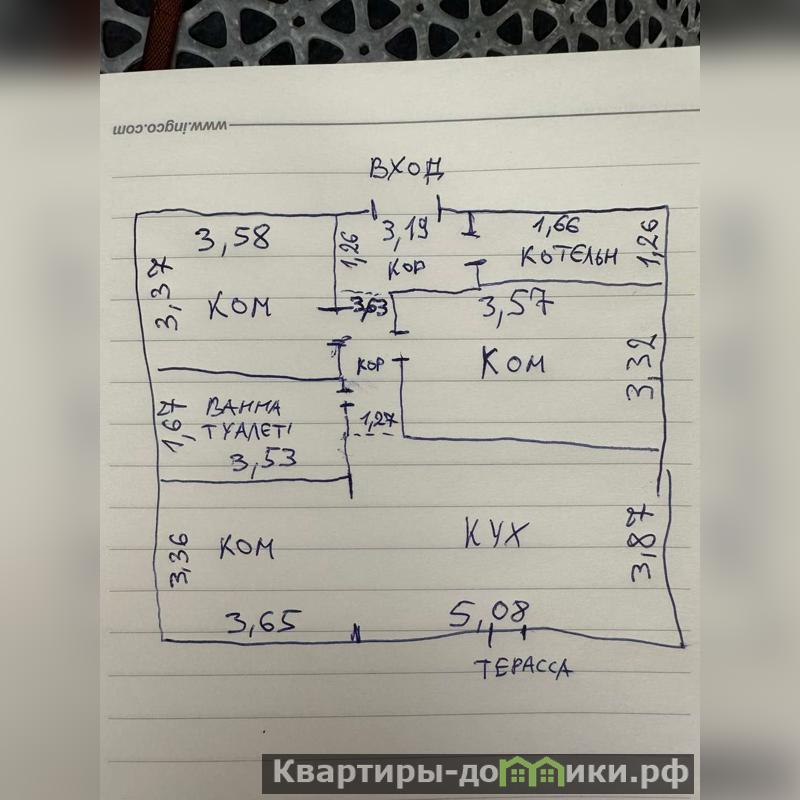 www.ingco.com
ВХОД
3,58
1,26
3,19
1,66
1,26
КОР
КОТЕЛЬН
3,37
КОМ
3,63
3,57
КОР
КОМ
3,32
1,67
ВАННА
ТУАЛЕТ
1,27
3,53
3,36
КОМ
КУХ
3,87
3,65
5,08
ТЕРАССА
Квартиры-домики.рф